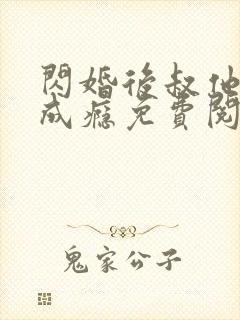 閃婚後叔他
成癮免費閱
鬼家公子